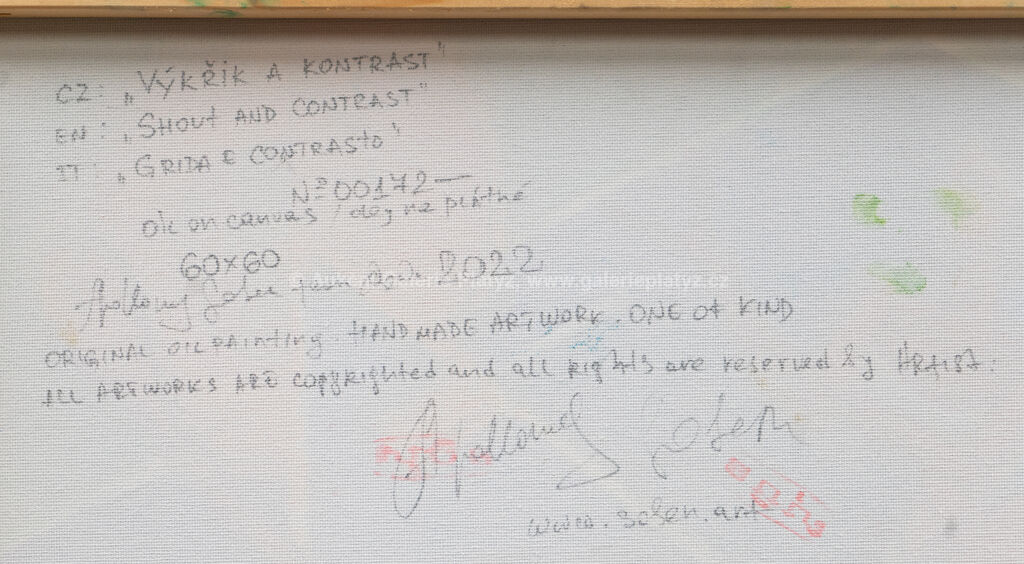 CZ: „VÝKŘIK A KONTRAST"
EN: „SHOUT AND CONTRAST"
IT: „GRIDA E CONTRASTO"
Nº00172—
oil on canvas / olej na plátně
60x60
2022
www.galerieplatyz.cz
ORIGINAL OIL PAINTING. HANDMADE ARTWORK. ONE OF KIND
ALL ARTWORKS ARE COPYRIGHTED and all RIGHTS are reserved by ARTIST.
www.solen.art